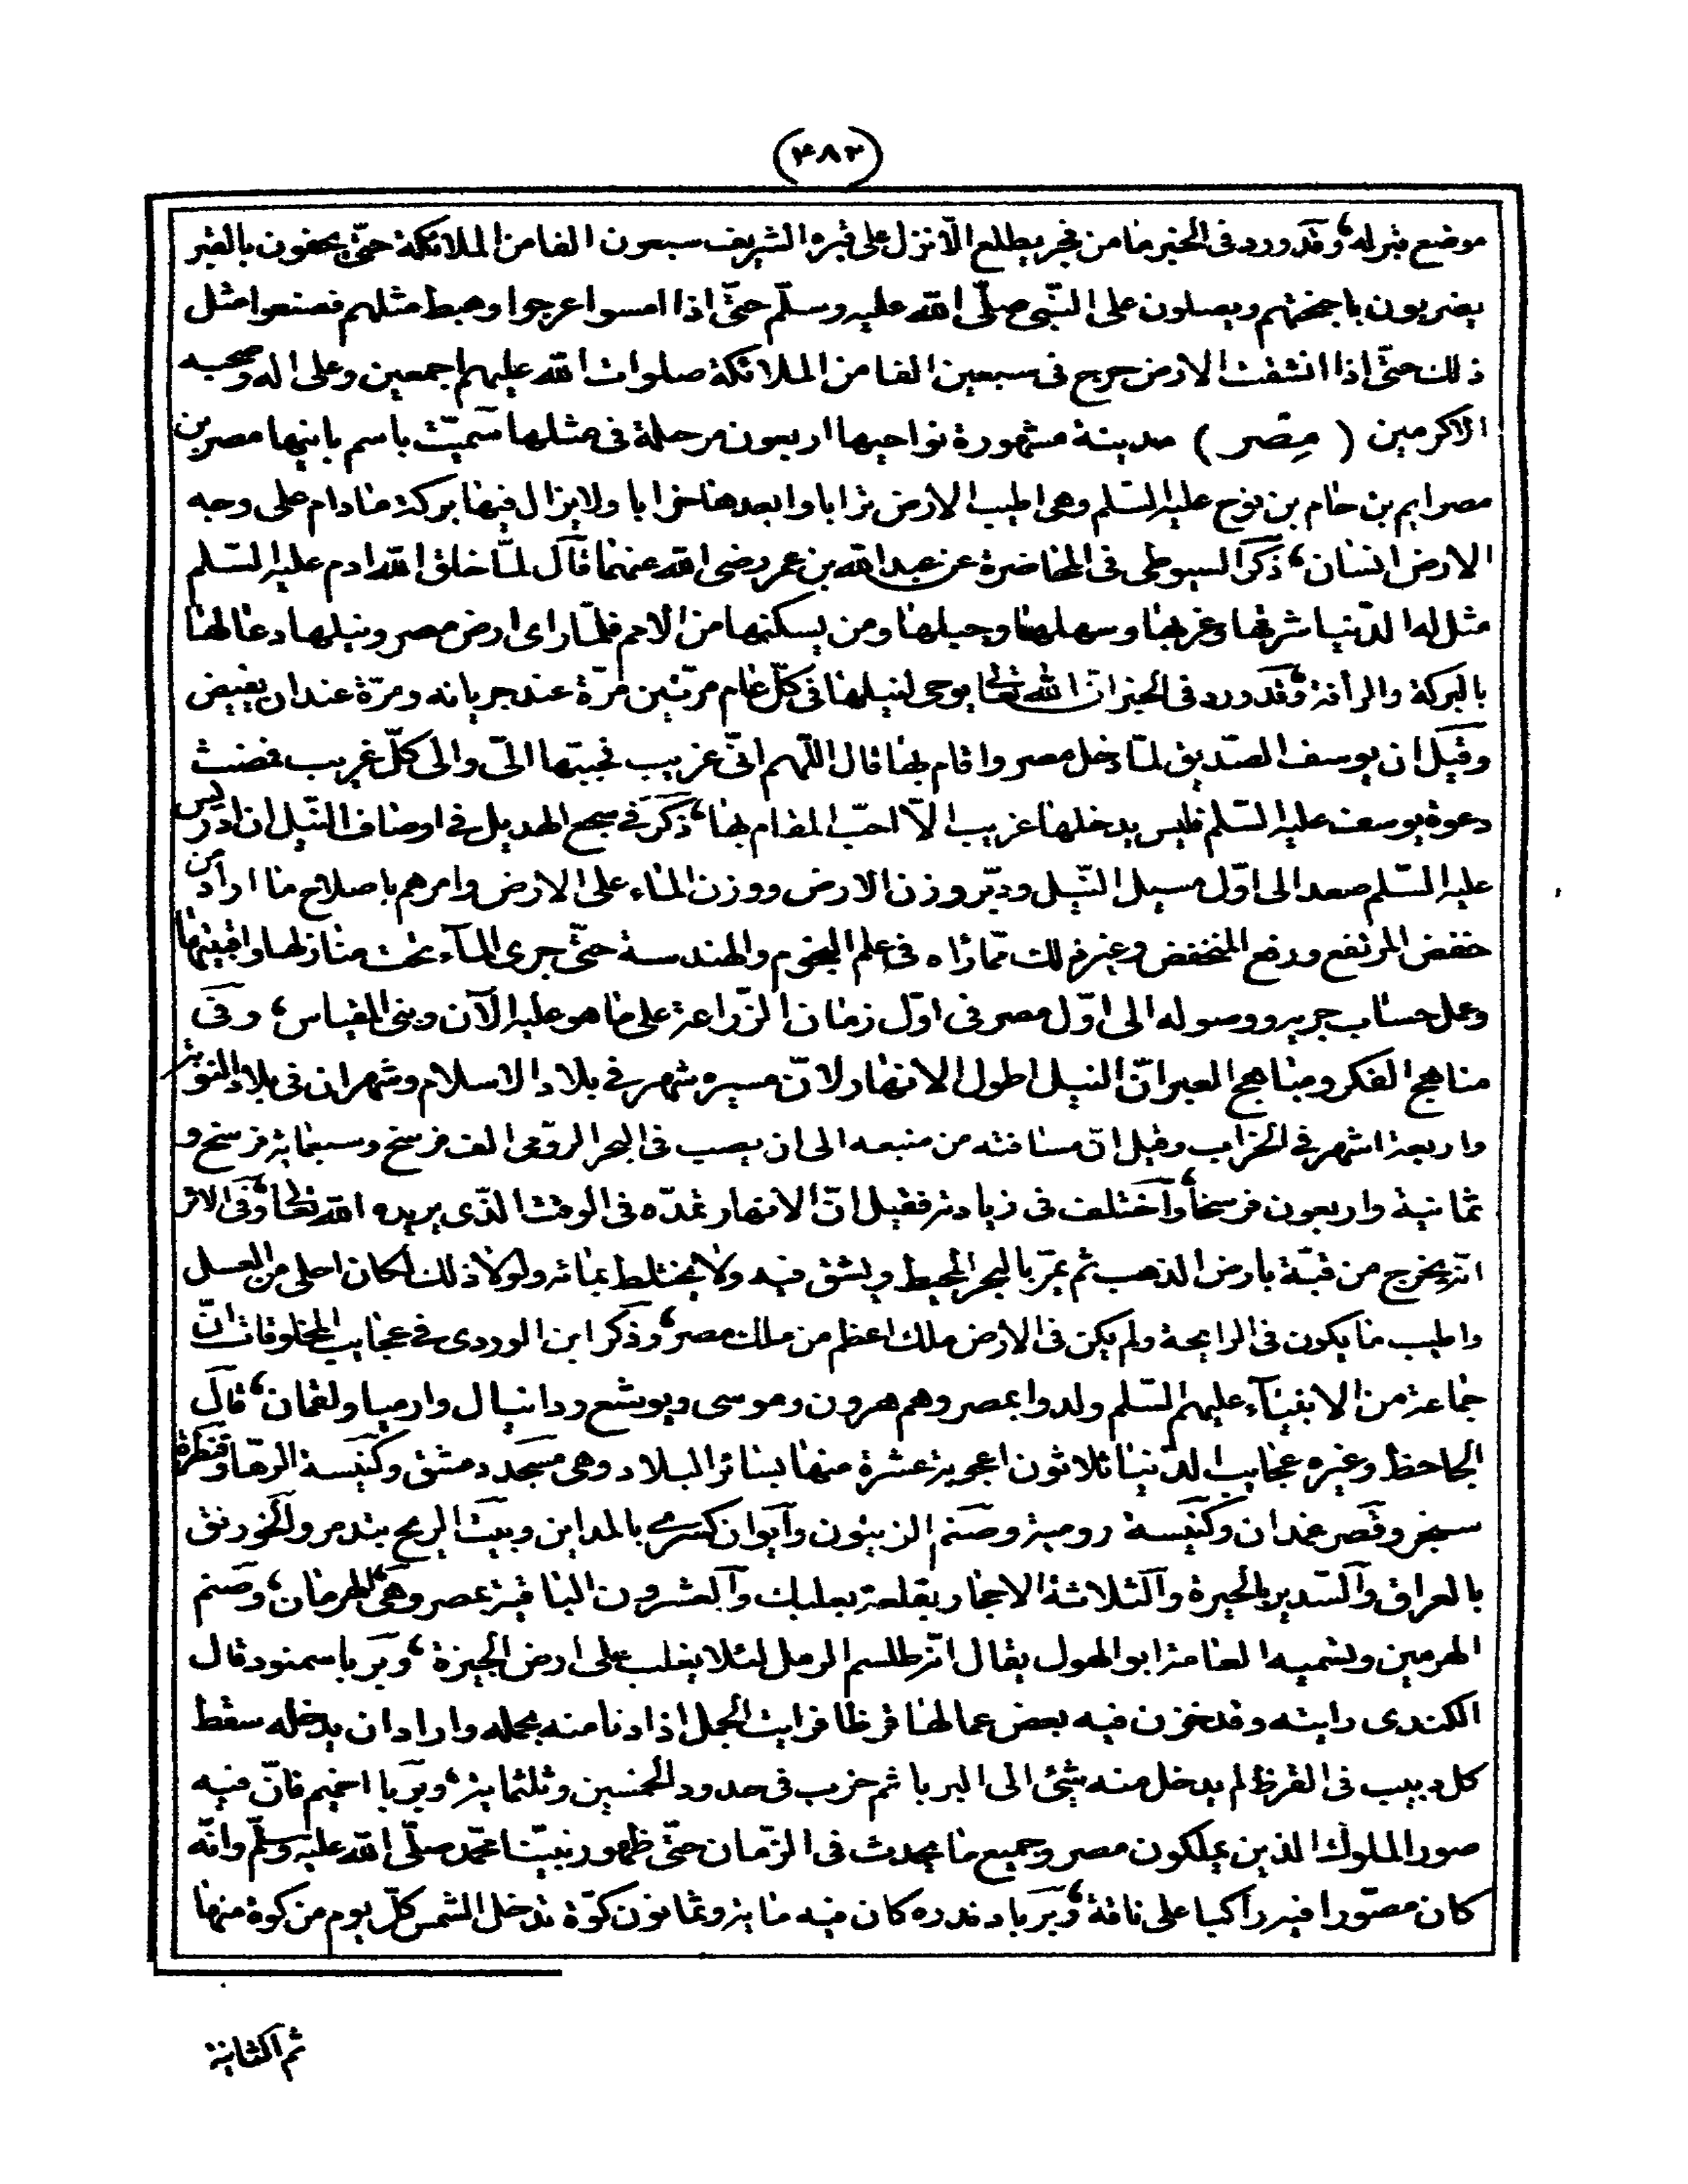 (٤٨٢)
موضع بثرله، وقد ورد فى الخبر ما من فجر يطلع الّا نزل على قبره الشريف سبعون الفا من الملائكة حتّى يحفون بالقبر
يضربون باجنحتهم ويصلون على النّبى صلّى الله عليه وسلّم حتّى اذا امسوا عرجوا وهبط مثلهم فصنعوا مثل
ذلك حتّى اذا انشقت الارض خرج فى سبعين الفا من الملائكة صلوات الله عليهم اجمعين وعلى اله وصحبه
الاكرمين ( مِصر ) مدينة مشهورة نواحيها اربعون مرحلة فى مثلها سمّيت باسم بانيها مصر بن
مصرايم بن حام بن نوح عليه السّلم وهى اطيب الارض ترابا وابعدها خرابا ولايزال فيها بركة مادام على وجه
الارض انسان، ذكر السيوطى فى المحاضرة عن عبد الله بن عمر رضى الله عنهما قال لمّا خلق الله ادم عليه السّلم
مثل له الدّنيا شرقها وغربها وسهلها وجبلها ومن يسكنها من الامم فلمّا راى ارض مصر ونيلها دعا لها
بالبركة والرأفة، وقد ورد فى الخبر انّ الله تعالى يوحى لنيلها فى كلّ عام مرّتين مرّة عند جريانه ومرّة عند ان يغيض
وقيل ان يوسف الصّديق لمّا دخل مصر واقام بها قال اللّهم انّى غريب فحبّبها الىّ والى كلّ غريب فمضت
دعوة يوسف عليه السّلم فليس يدخلها غريب الّا احبّ المقام بها، ذكر فى سجع الهديل فى اوصاف النّيل ان ادريس
عليه السّلم صعد الى اوّل مسيل النّيل ودبّر وزن الارض ووزن الماء على الارض وامرهم باصلاح ما اراد من
خفض المرتفع ورفع المنخفض وغير ذلك ممّا رَاه فى علم النجوم والهندسة حتّى جرى المآء تحت منازلها وافنيتها
وعمل حساب جريه ووصوله الى اوّل مصر فى اوّل زمان الزّراعة على ما هو عليه الآن وبنى المقياس، وفى
مناهج الفكر ومباهج العبر انّ النيل اطول الانهار لانّ مسيره شهر فى بلاد الاسلام وشهران فى بلاد النوبة
واربعة اشهر فى الخراب وقيل انّ مسافته من منبعه الى ان يصب فى البحر الرومى الف فرسخ وسبعماية فرسخ و
ثمانية واربعون فرسخاً، واختلف فى زيادته فقيل انّ الانهار تمدّه فى الوقت الّذى يريده الله تعالى، وفى الاثر
انّه يخرج من قبّة بارض الذهب ثم يمرّ بالبحر المحيط ويشق فيه ولا يختلط بمائه ولولا ذلك لكان احلى من العسل
واطيب ما يكون فى الرايحة ولم يكن فى الارض ملك اعظم من ملك مصر، وذكر ابن الوردى فى عجايب المخلوقات انّ
جماعة من الانبيآء عليهم السّلم ولدوا بمصر وهم هرون وموسى ويوشع ودانيال وارميا ولقمان، قال
الجاحظ وغيره عجايب الدّنيا ثلاثون اعجوبة عشرة منها بسائر البلاد وهى مسجد دمشق وكنيسة الرّها وقنطرة
سنجر وقصر غمدان وكنيسة رومية وصنم الزيتون وايوان كسرى بالمداين وبيت الريح بتدمر والخورنق
بالعراق والسّدير بالحيرة والثلاثة الاحجار بقلعة بعلبك والعشرون الباقية بمصر وهى الهرمان، وصنم
الهرمين وتسميه العامّة ابو الهول يقال انّه طلسم الرمل لئلا يغلب على ارض الجيزة، وبربا سمنود قال
الكندى رايته وقد خزن فيه بعض عمالها قرظا فرايت الجمل اذا دنا منه بحمله واراد ان يدخله سقط
كل دبيب فى القرظ لم يدخل منه شئ الى البربا ثم خرب فى حدود الخمسين وثلثماية، وبربا اخيم فانّ فيه
صور الملوك الذين يملكون مصر وجميع ما يحدث فى الزّمان حتّى ظهور نبيّنا محمّد صلّى الله عليه وسلّم وانّه
كان مصوّرا فيه راكبا على ناقة، وبربا دندره كان فيه ماية وثمانون كوّة تدخل الشمس كلّ يوم من كوة منها
ثم الثانية